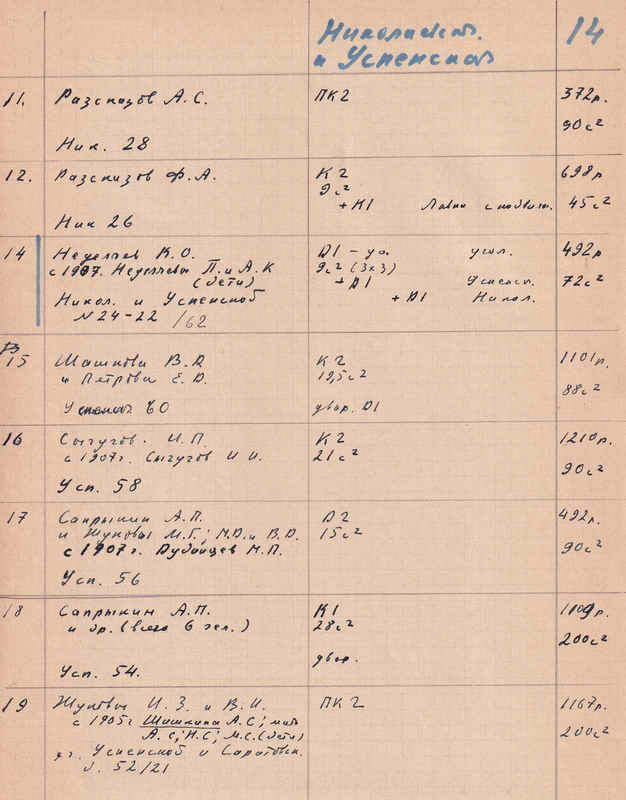 14
Николаевск.
и Успенской
11. Разсказов А.С. ПК2 372р.
90с²
Ник. 28
12. Разсказов Ф.А. К2 698р
9с²
+К1 Лавка с подвал. 45с²
Ник 26
14 Неделяев К.О. D1 – ул. угол. 492р
с 1907. Неделяевы П. и А.К 9с² (3х3) 72с²
(дети) +D1 Успенск.
Никол. и Успенской +D1 Никол.
№24-22 /62
15 Шашкова В.Д К2 1101р.
и Петрова Е.D. 19,5с²
88с²
60 удвор. D1
16 Сычугов. И.П. К2 1210р.
с 1907г. Сычугов И И. 21с²
90с²
Усп. 58
17 Сапрыкин А.П. D2 492р.
и Жуковы М.Г.; М.D. и В.D. 15с²
с 1907г. Дубовцев М.П. 90с²
Усп. 56
18 Сапрыкин А.П. К1 1109р.
и др. (всего 6 чел.) 28с²
200с²
удвор.
Усп. 54.
19 Жуковы И.З. и В.И. ПК2 1167р.
с 1905г Шашкина А.С;
А.С; Н.С; М.С. (дети) 200с²
Успенской и Саратовск.
д. 52/21